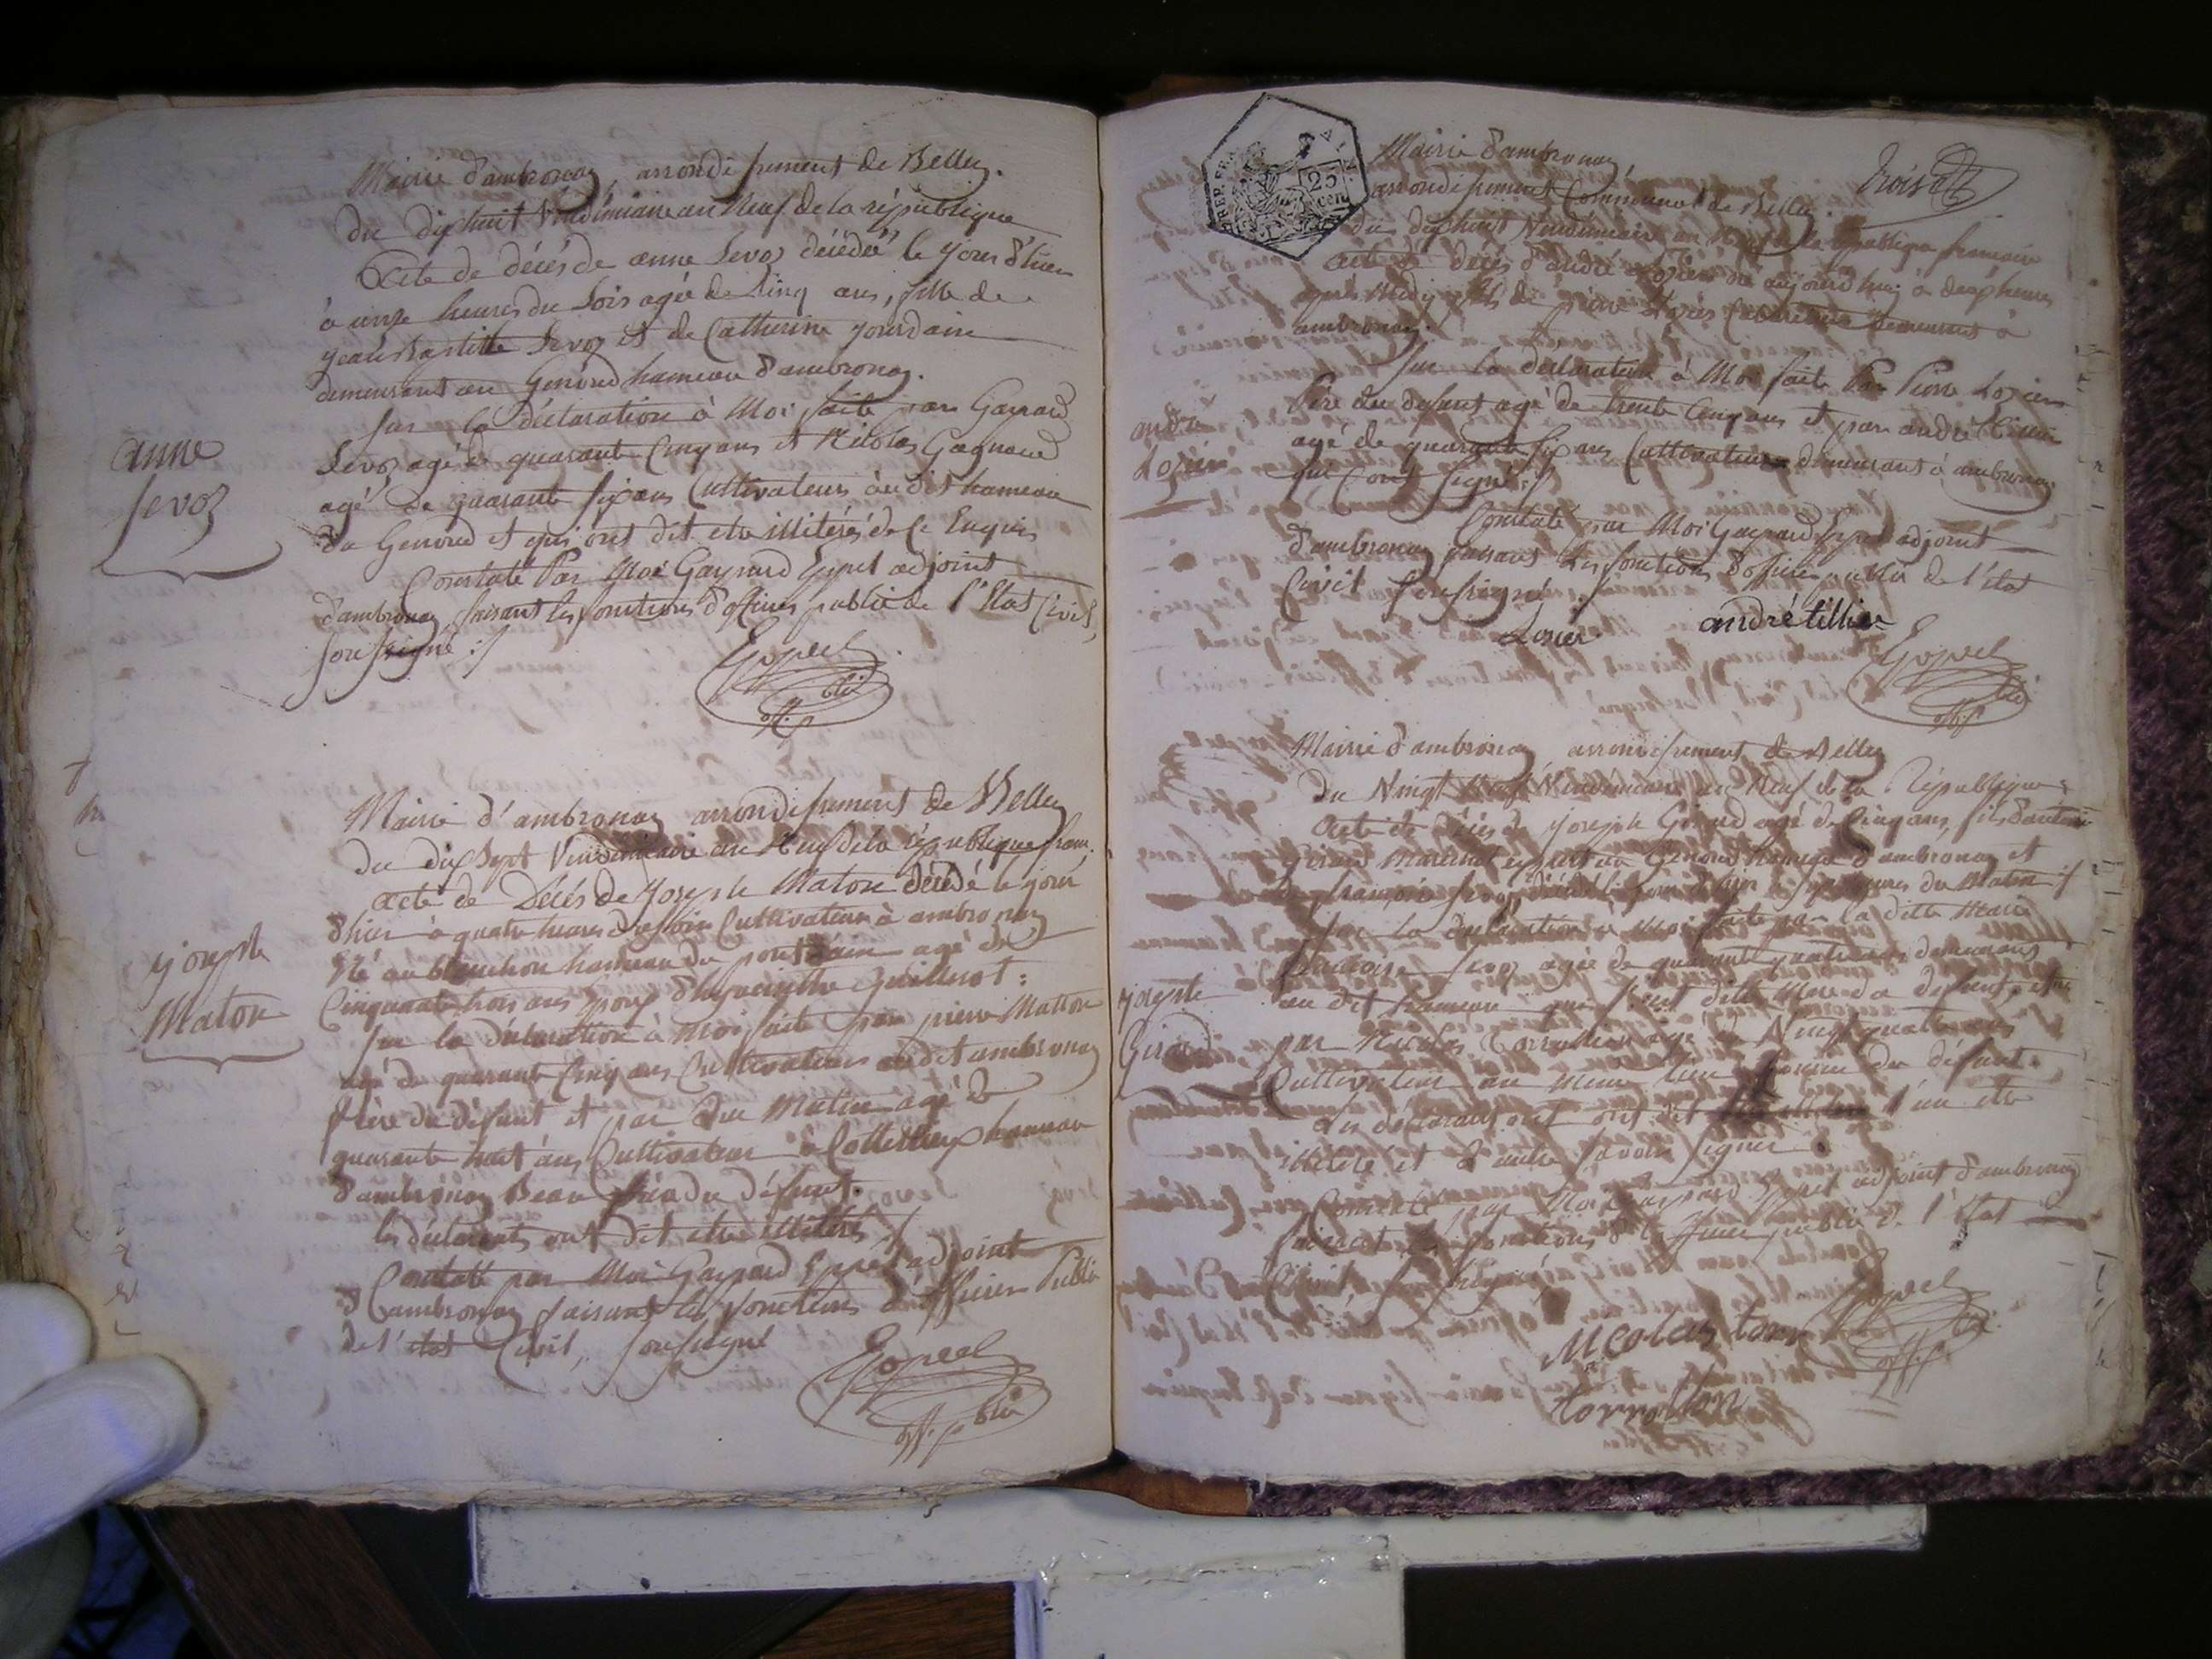 Mairie d'ambronay, arrondissement de Belley.
du dix huit Vendémiaire an Neuf de la république
Acte de décés de anne Sevoz décédée le jour d'hier
à onze heures du Soir agée de Cinq ans, fille de
jean Baptiste Sevoz et de Catherine jourdain
demeurant au Genoud hameau d'ambronay.
Sur la déclaration à Moi faite par Gaspard
Sevoz agé de quarante Cinq ans et Nicolas Gagneux
agé de quarante six ans Cultivateurs audit hameau
du Genoud et qui ont dit etre illitérés de Ce Enquis
Constaté Par Moi Gaspard Eypel adjoint
d'ambronay, faisant les fonctions d'officier public de l'Etat Civil,
Soussigné :/
anne
Sevoz
Eypel
off. p blic
Mairie d'ambronay arrondissement de Belley
du dix Sept Vendémiaire an Neuf de la république fran.
acte de Décés de Joseph Maton décédé le jour
d'hier à quatre heures du soir Cultivateur à ambronay
Né au blanchon hameau du pont dain agé de
Cinquante trois ans Epoux d'hyacinthe Guillerot :
Sur la déclaration à Moi faite par pierre Matton
agé de quarante Cinq ans Cultivateur audit ambronay
frère du défunt et par Matin agé de
quarante huit ans Cultivateur à Cottettieux hameau
d'ambronay Beau frère du défunt.
les déclarants ont dit etre illitérés :/
Constaté par Moi Gaspard Eypel adjoint
d'ambronay faisant les fonctions d'officier Public
de l'etat Civil, soussigné
joseph
Maton
Eypel
off. p blic
25
cen
Mairie d'ambronay,
arrondissement Communal de Belley.
du dix huit Vendémiaire an Neuf de la république francaise
acte de décés d'andré Losier dcd aujourd'huy à deux heures
après Midy fils de pierre Losier Cabaretier demeurant à
ambronay.
Sur la déclaration à Moi faite Par Pierre Losier
Père du défunt agé de trente Cinq ans et par andré tillier
agé de quarante six ans Cultivateur demeurant à ambronay
qui ont signé :/
Constaté par Moi Gaspard Eypel adjoint
d'ambronay faisant les fonctions d'officier public de l'état
Civil Soussigné
andré
Losier
Losier
andré tillier
Eypel
off. p blic
Mairie d'ambronay arrondissement de Belley
du Vingt Neuf Vendémiaire an Neuf de la République
acte de décés de joseph Girard agé de Cinq ans, fils d'antoine
girard Marechal expert au Genoud hameau d'ambronay et
de françoise Sevoz, décédé le jour d'hier à heures du Matin :/
Sur la déclaration à Moi faite par la ditte Marie
françoise Sevoz agée de quarante quatre ans demeurant
au dit hameau ditte Mere du defunt, et
par Nicolas Torrollion agé de Vingt quatre ans
Cultivateur au meme lieu Cousin du défunt.
Les déclarants ont dit l'un etre
illitéré et l'autre Savoir Signer
Constaté par Moi Gaspard Eypel adjoint d'ambronay
faisant les fonctions d'officier public de l'état
Civil, soussigné
joseph
Girard
Nicolas torr
Eypel
off. p